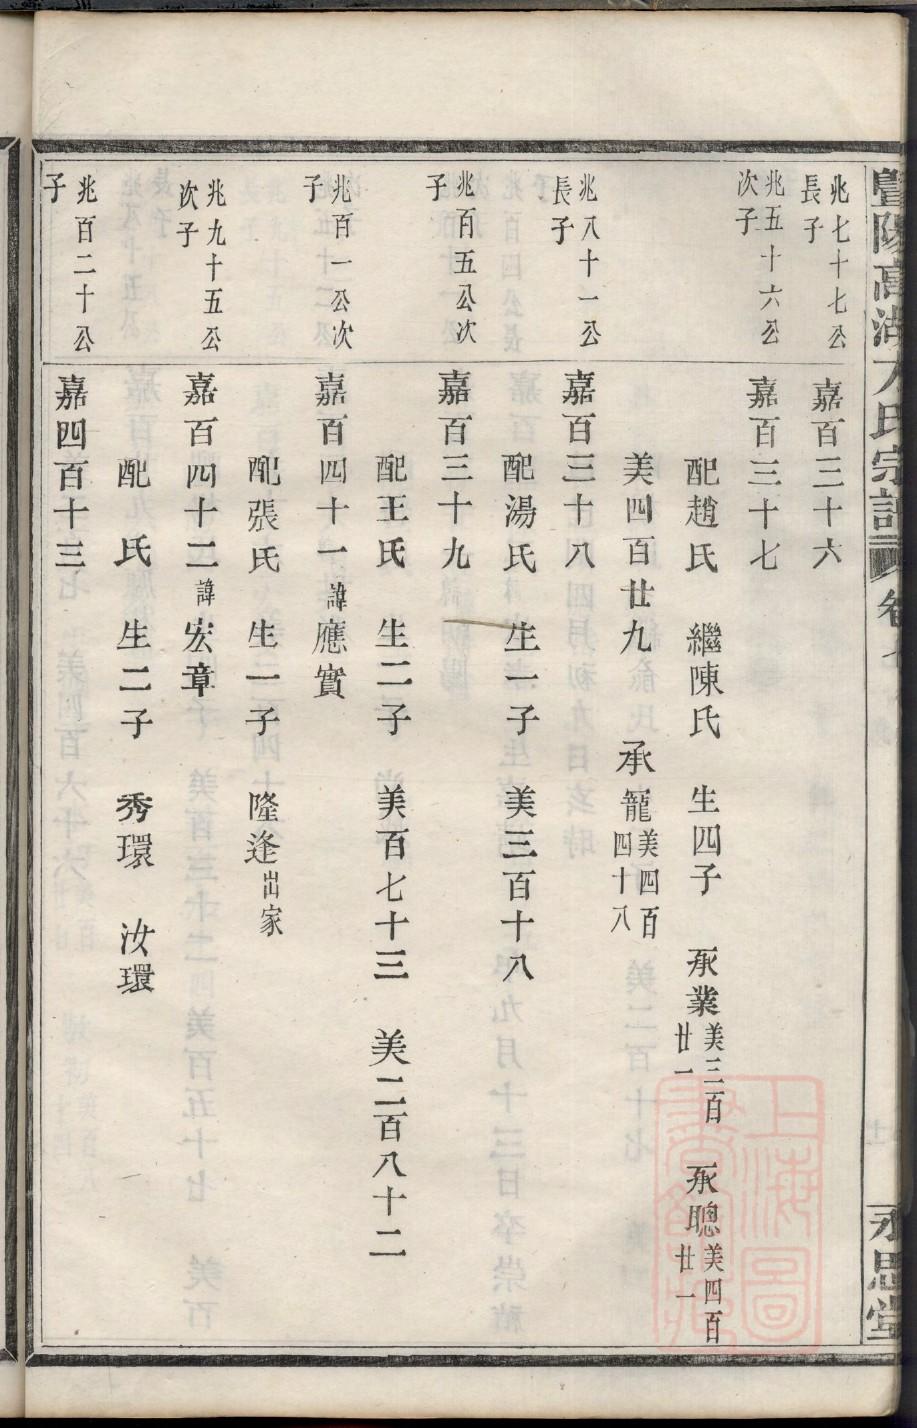 暨陽高湖方氏宗譜 卷七
永思堂
兆七十七公長子
嘉百三十六
兆五十六公次子
嘉百三十七
配趙氏 繼陳氏 生四子 承業美三百廿一 承聰美四百廿一
美四百廿九 承寵美四百四十八
兆八十一公長子
嘉百三十八
配湯氏 生一子 美三百十八
兆百五公次子
嘉百三十九
配王氏 生二子 美百七十三 美二百八十二
兆百一公次子
嘉百四十一諱應實
配張氏 生一子 隆逢出家
兆九十五公次子
嘉百四十二諱宏章
配 氏 生二子 秀環 汝環
兆百二十公子
嘉四百十三